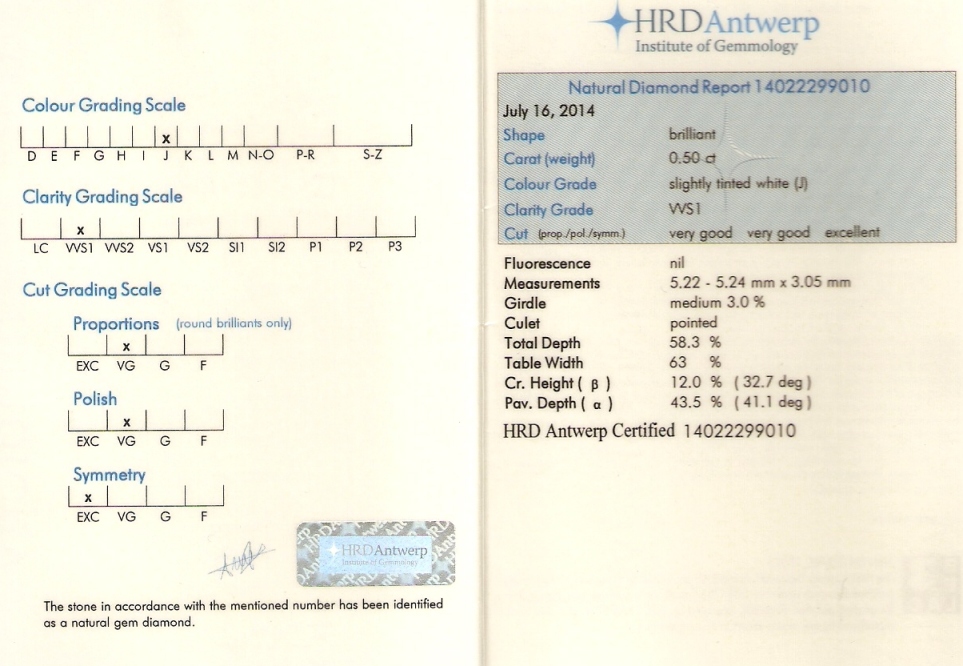 Colour Grading Scale
x
D E F G H I J K L M N-O P-R S-Z
Clarity Grading Scale
x
LC VVS1 VVS2 VS1 VS2 SI1 SI2 P1 P2 P3
Cut Grading Scale
Proportions (round brilliants only)
x
EXC VG G F
Polish
x
EXC VG G F
Symmetry
x
EXC VG G F
HRDAntwerp
Institute of Gemmology
The stone in accordance with the mentioned number has been identified
as a natural gem diamond.
HRDAntwerp
Institute of Gemmology
Natural Diamond Report 14022299010
July 16, 2014
Shape brilliant
Carat (weight) 0.50 ct
Colour Grade slightly tinted white (J)
Clarity Grade VVS1
Cut (prop./pol./symm.) very good very good excellent
Fluorescence nil
Measurements 5.22 - 5.24 mm x 3.05 mm
Girdle medium 3.0 %
Culet pointed
Total Depth 58.3 %
Table Width 63 %
Cr. Height ( β ) 12.0 % ( 32.7 deg )
Pav. Depth ( α ) 43.5 % ( 41.1 deg )
HRD Antwerp Certified 14022299010